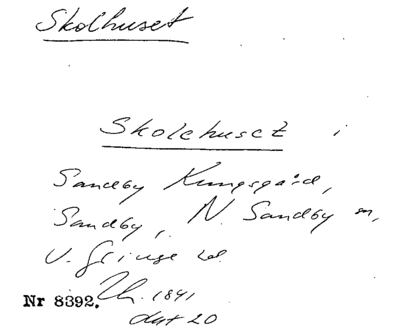 Skolhuset
Skolehuset i
Sandby Kungsgård,
Sandby, N. Sandby sn,
V. Göinge hd.
Nr 8392. Uh. 1841
dat 20